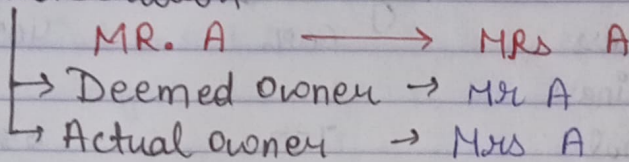 MR. A → MRs A
→ Deemed owner → Mr A
→ Actual owner → Mrs A